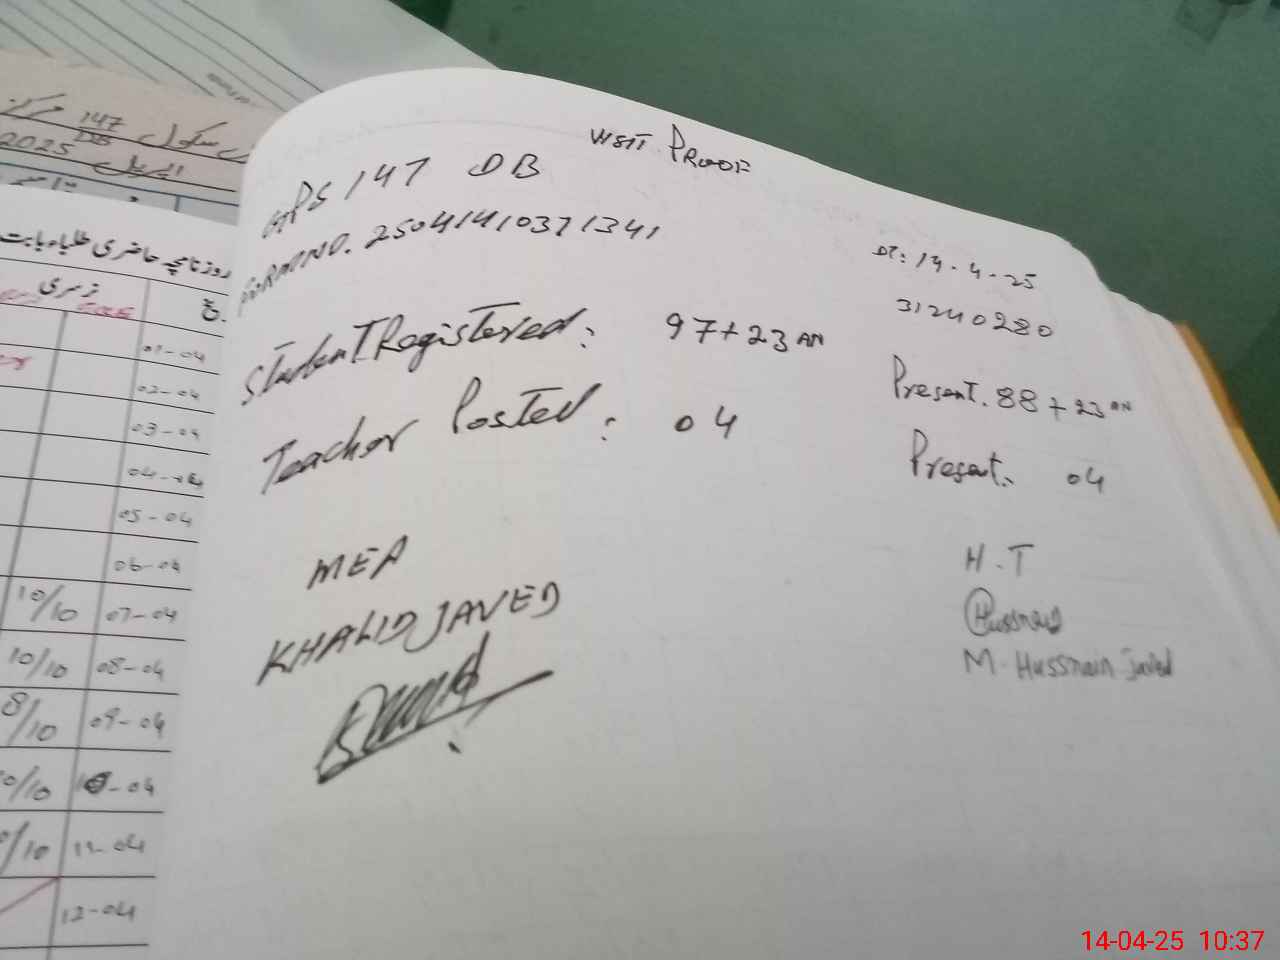 VISIT PROOF
GPS 147 DB
DT: 14-4-25
FORM NO. 25041410371341
31240280
Student Registered: 97+23 AN
Present. 88+23 AN
Teacher Posted: 04
Present. 04
MEA
H.T
KHALID JAVED
Hussnain
M. Hussnain Javed
سکول 147 مرکز
DB
اپریل 2025
روزنامچہ حاضری طلباء بابت
نرسری
01-04
02-04
03-04
04-04
05-04
06-04
10/10 07-04
10/10 08-04
8/10 09-04
10/10 10-04
/10 11-04
12-04
14-04-25 10:37